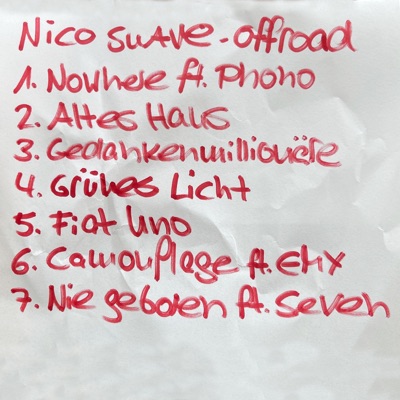 Nico Suave - Offroad
1. Nowhere ft. Phono
2. Altes Haus
3. Gedankenmillionäre
4. Grünes Licht
5. Fiat Uno
6. Camouflage ft. Enx
7. Nie geboren ft. Seven